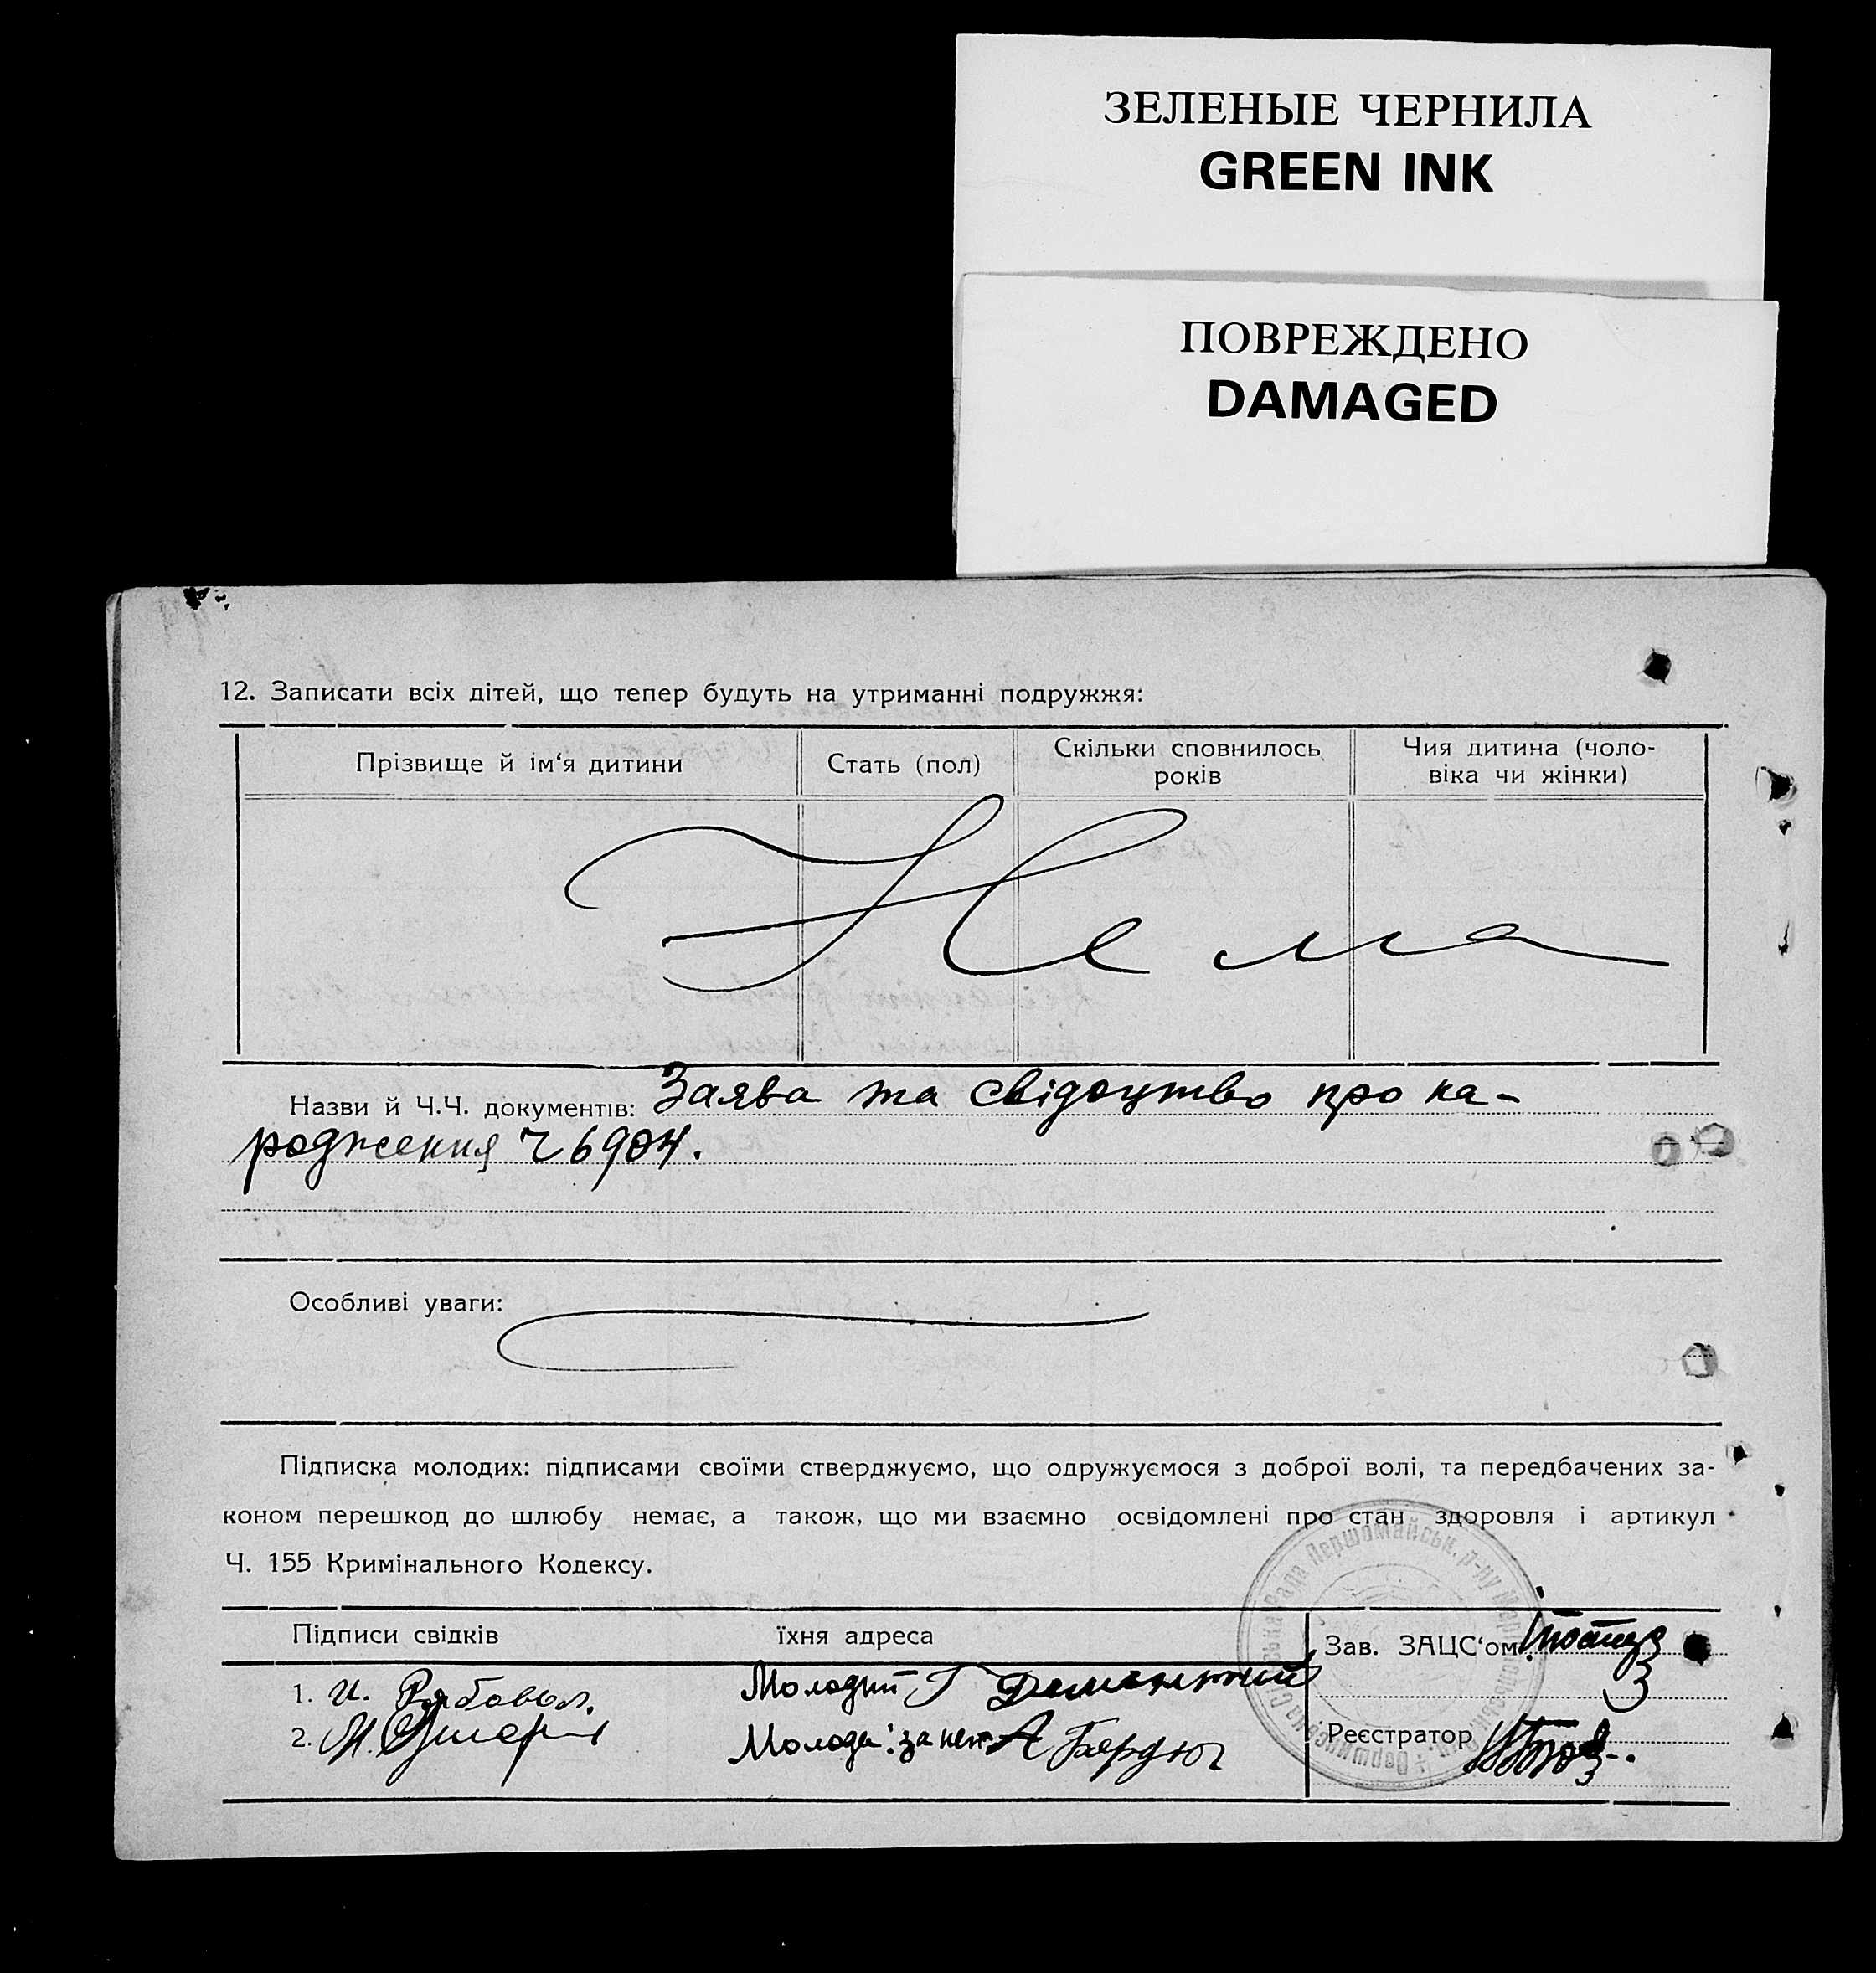 ЗЕЛЕНЫЕ ЧЕРНИЛА
GREEN INK
ПОВРЕЖДЕНО
DAMAGED
12. Записати всіх дітей, що тепер будуть на утриманні подружжя:
Прізвище й ім‘я дитини
Стать (пол)
Скільки сповнилось
років
Чия дитина (чоло-
віка чи жінки)
Нема
Назви й Ч.Ч. документів: Заява та свідоцтво про на-
родження ч 6904.
Особливі уваги:
Підписка молодих: підписами своїми стверджуємо, що одружуємося з доброї волі, та передбачених за-
коном перешкод до шлюбу немає, а також, що ми взаємно освідомлені про стан здоровля і артикул
Ч. 155 Кримінального Кодексу.
Підписи свідків
їхня адреса
Зав. ЗАЦС‘ом
1. И.
Молодий Г
2.
Молода: за неп А Бердюг
Реєстратор
Рада Першомайськ. р-ну